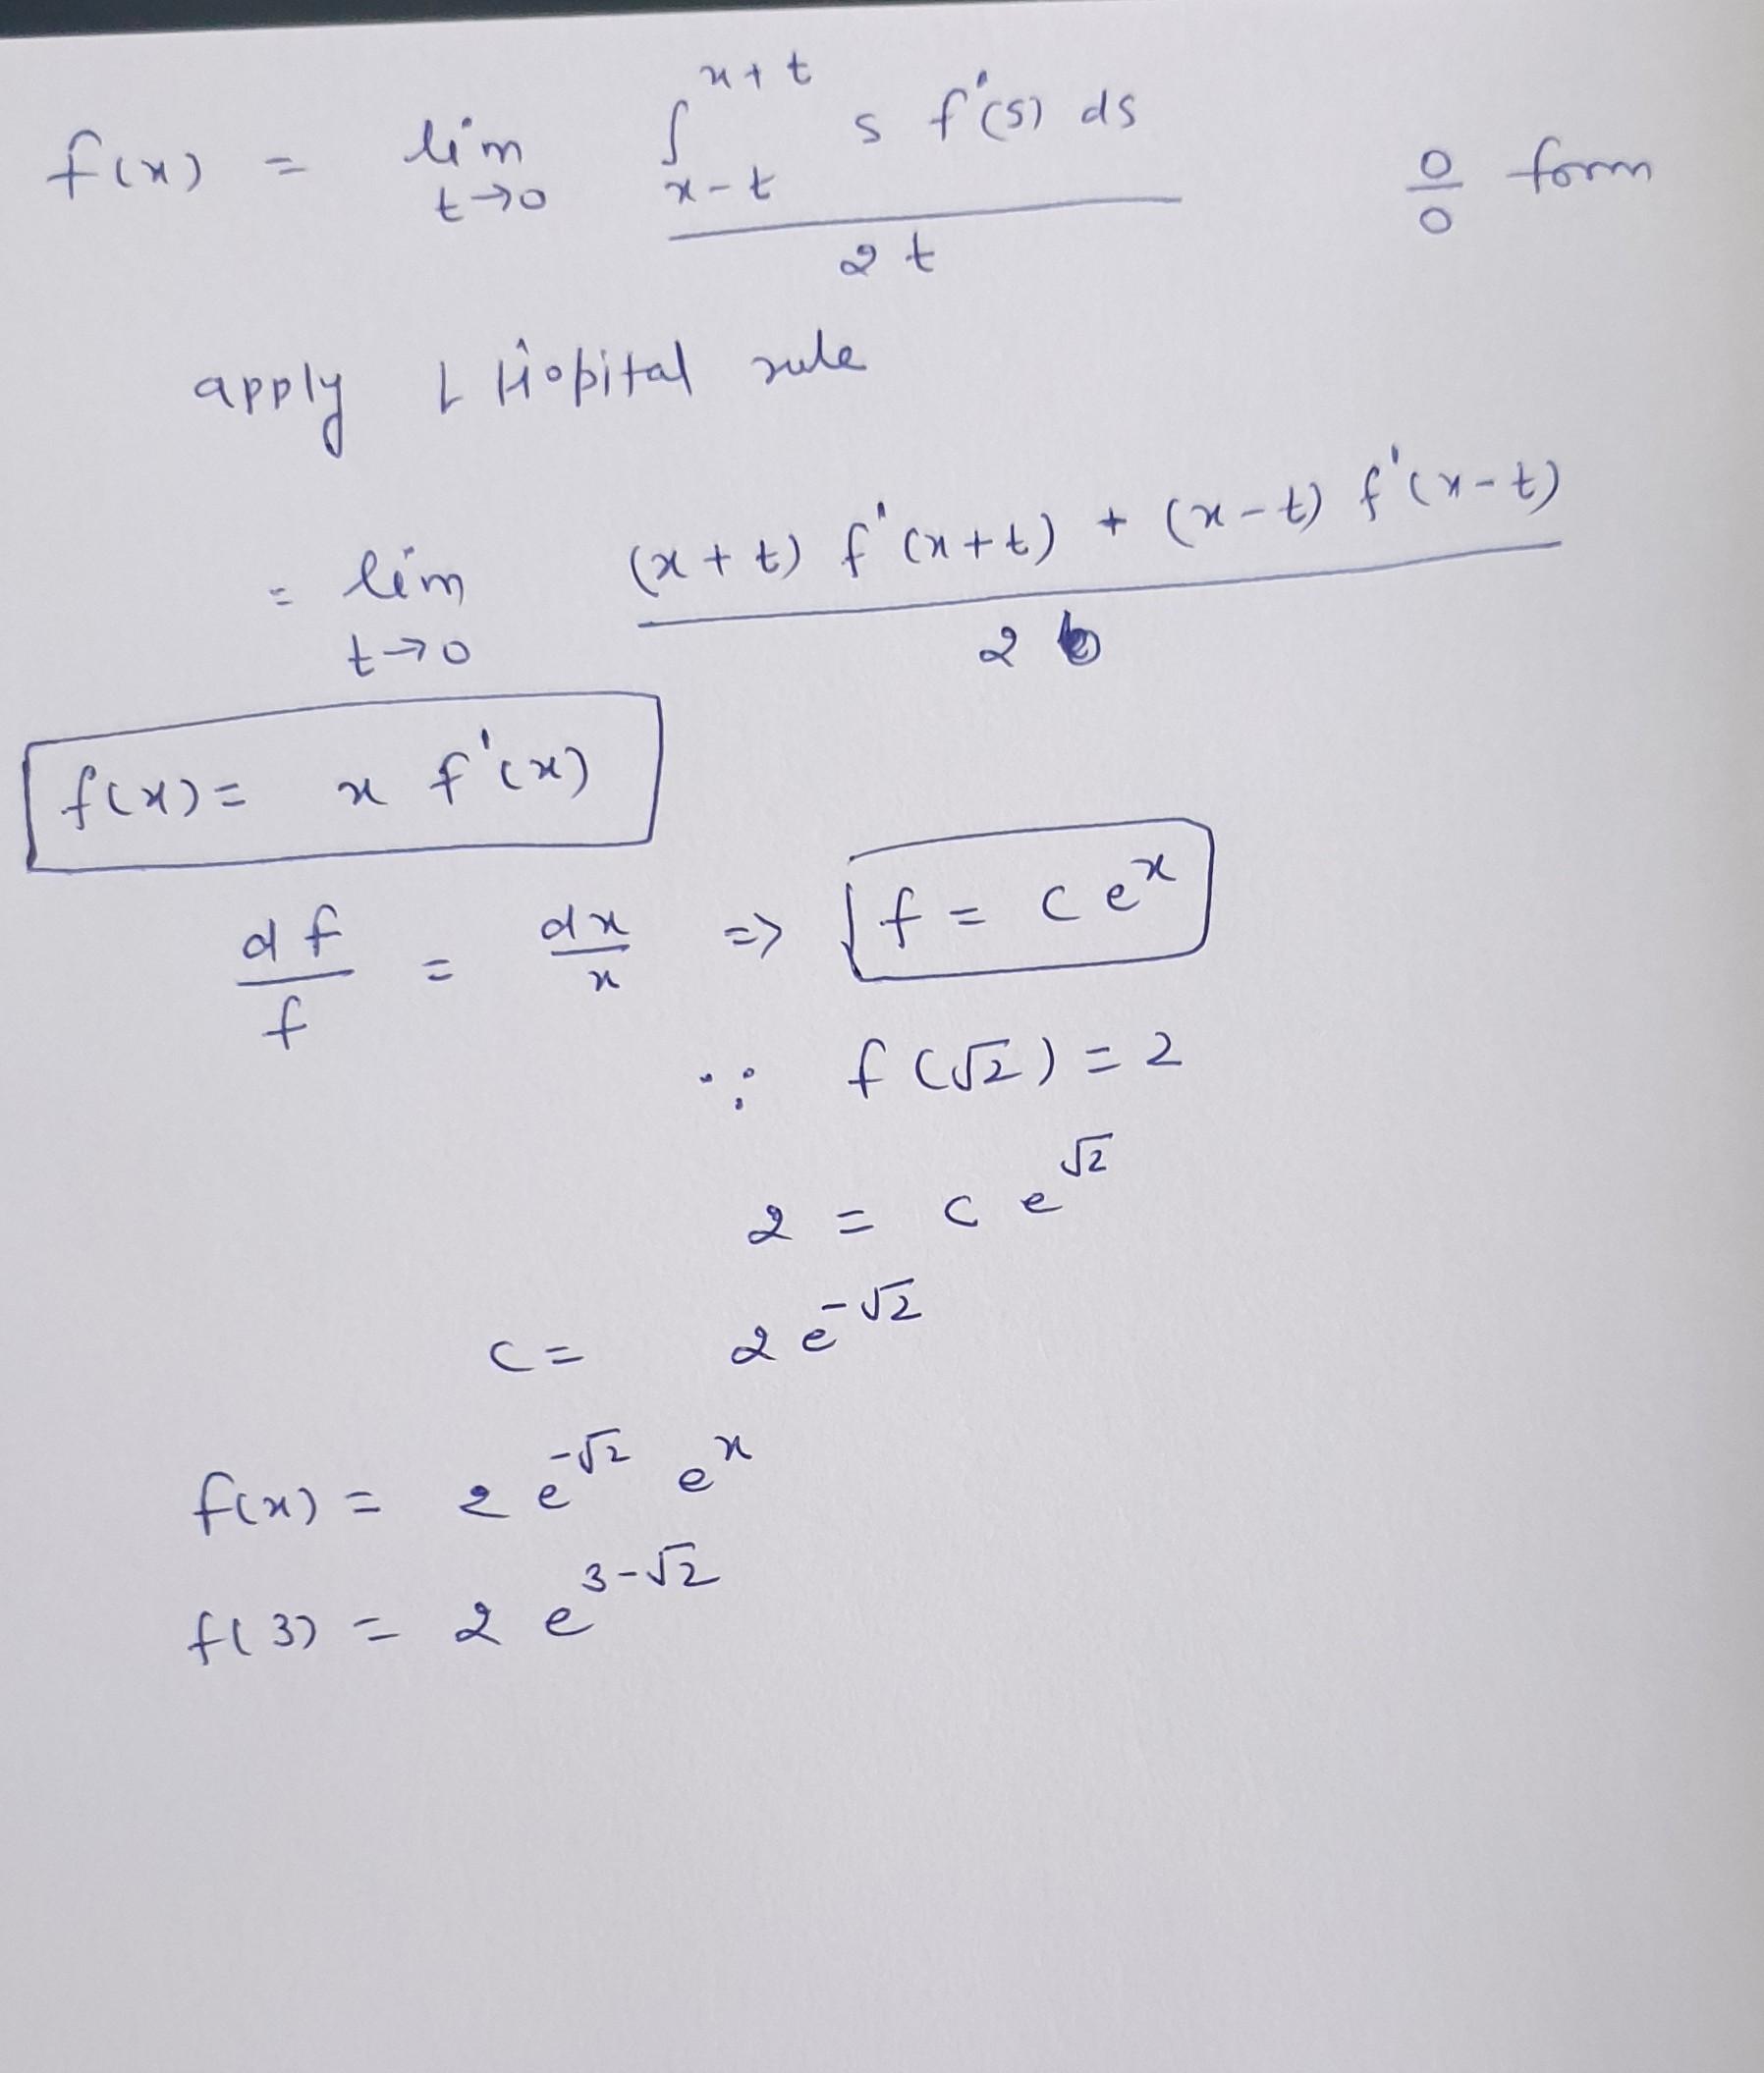 f(x) = lim t→0 ∫ x-t x+t s f'(s) ds / 2t 0/0 form
apply L Hôpital rule
= lim t→0 (x+t) f'(x+t) + (x-t) f'(x-t) / 2
f(x) = x f'(x)
df/f = dx/x ⇒ f = c e^x
∵ f(√2) = 2
2 = c e^√2
c = 2 e^-√2
f(x) = 2 e^-√2 e^x
f(3) = 2 e^3-√2